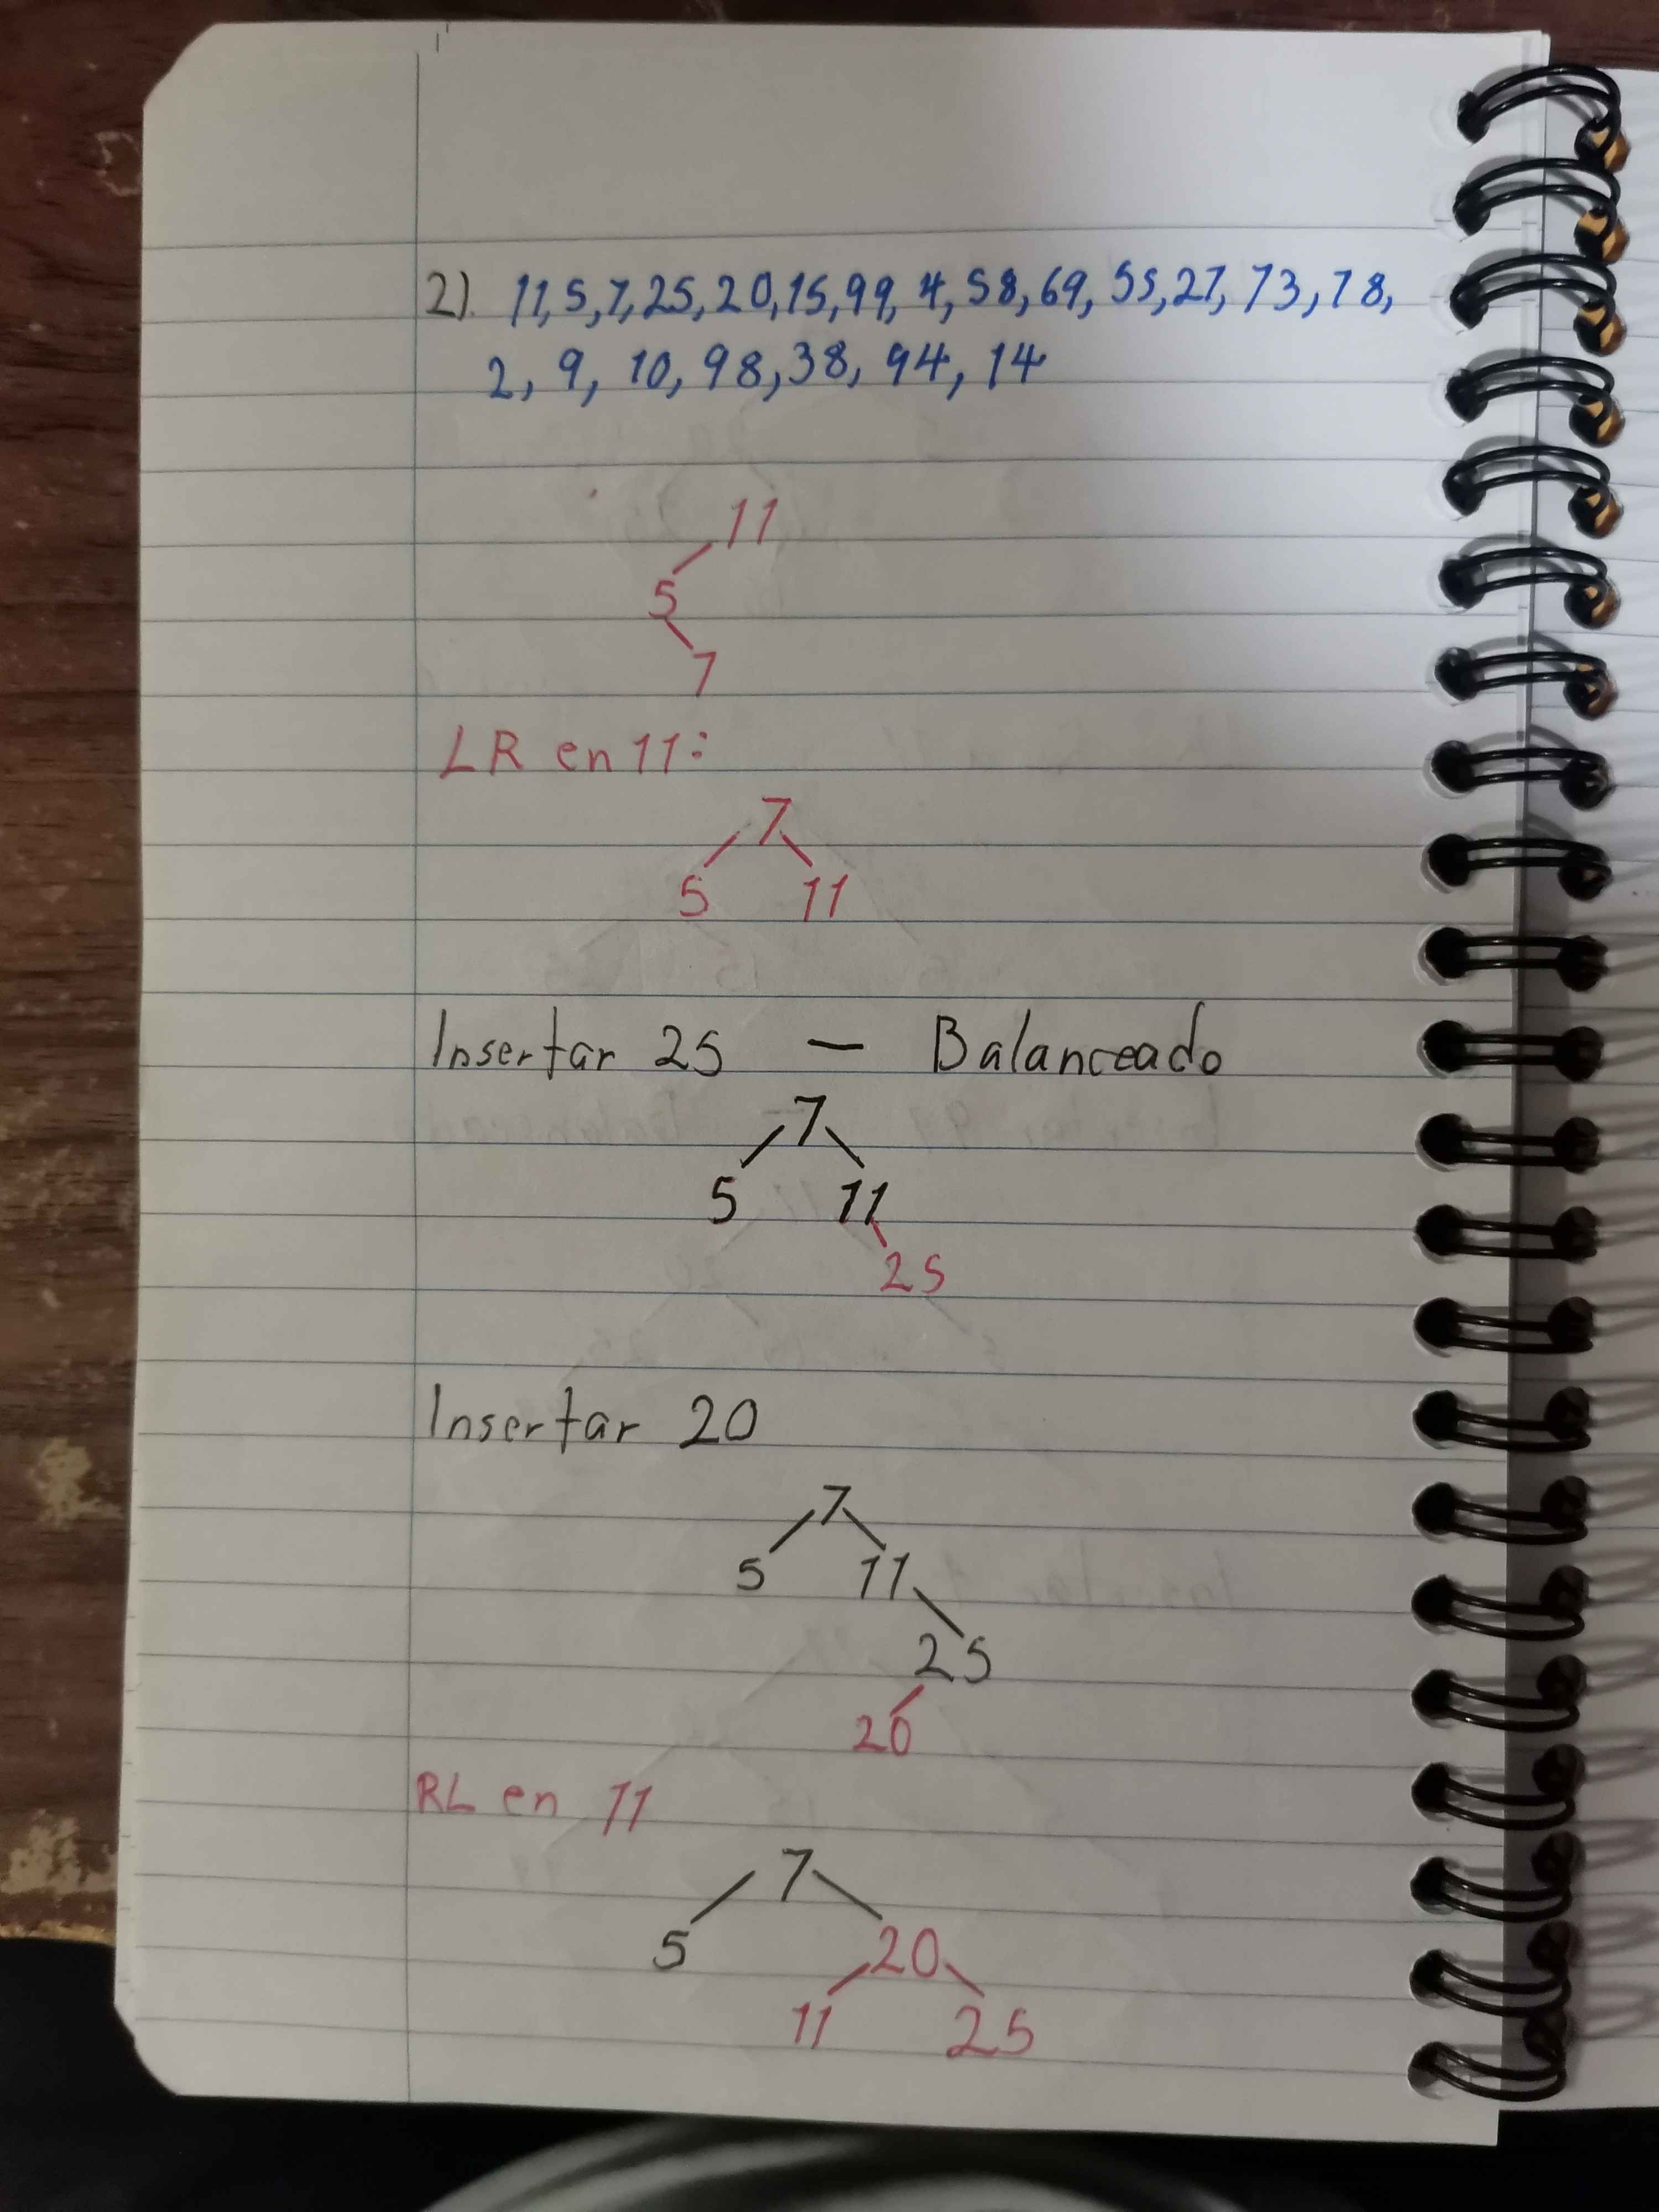 2). 11,5,7,25,20,15,99,4,58,69,55,27,73,78,
2, 9, 10, 98,38, 94, 14
11
5
7
LR en 11:
7
5 11
Insertar 25 — Balanceado
7
5 11
25
Insertar 20
7
5 11
25
20
RL en 11
7
5 20
11 25